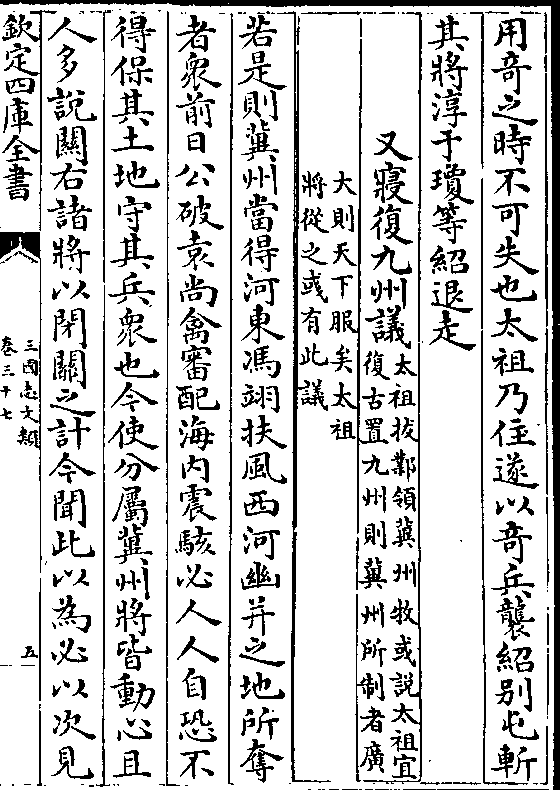 用竒之時不可失也太祖乃住遂以竒兵襲紹别屯斬
其將淳于瓊等紹退走
又寢復九州議
太祖拔鄴領冀州牧或説太祖宜
復古置九州則冀州所制者廣
大則天下服矣太祖
將從之彧有此議
若是則冀州當得河東馮翊扶風西河幽并之地所奪
者衆前日公破袁尚禽審配海内震駭必人人自恐不
得保其土地守其兵衆也今使分屬冀州將皆動心且
人多說關右諸將以閉關之計今聞此以為必以次見
欽定四庫全書
三國志文類
卷三十七
五